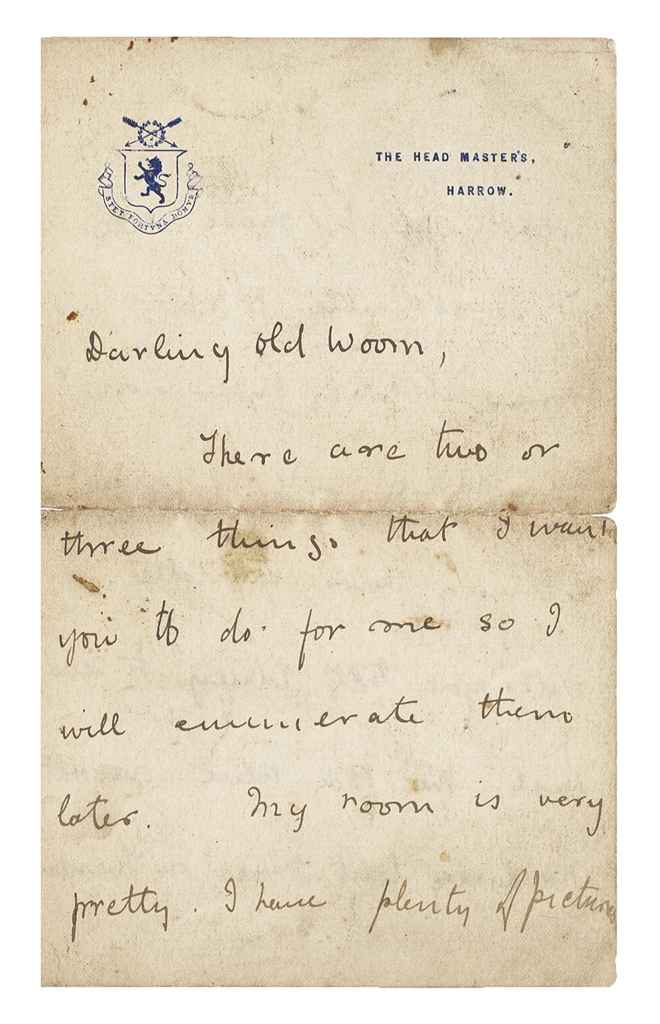 STET FORTVNA DOMVS
THE HEAD MASTER'S,
HARROW.
Darling old Woom,
There are two or
three things that I want
you to do for me so I
will enumerate them
later. My room is very
pretty. I have plenty of pictures